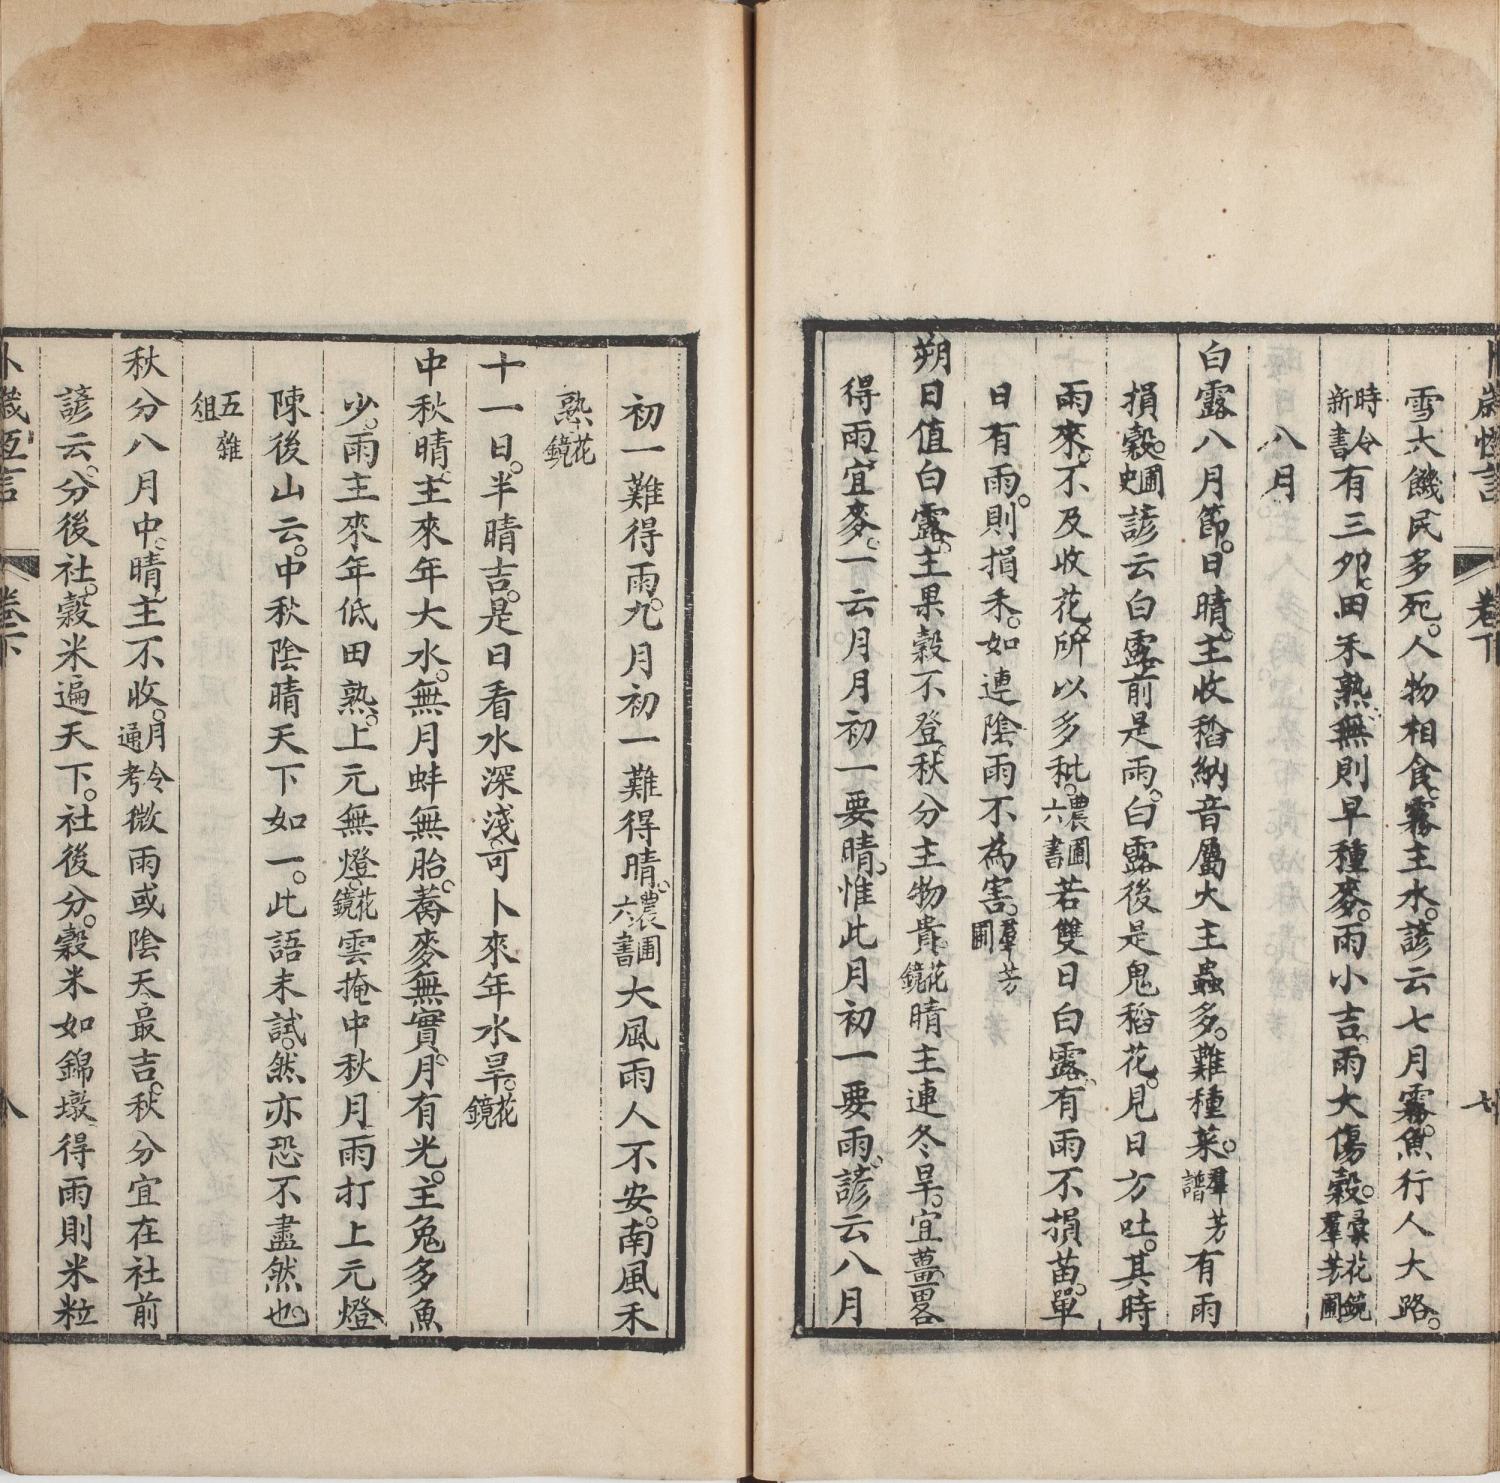 卜歲恆言　卷下　七
雪大饑民多死。人物相食。霧主水。諺云七月霧。魚行人大路。
時令新書有三卯。田禾熟。無則早種麥。雨小吉。雨大傷穀。彙花鏡羣芳圃
八月
白露八月節。日晴。主收稻。納音屬火主蟲多。難種菜。羣芳譜有雨
損穀。圃史諺云白露前是雨。白露後是鬼。稻花。見日方吐。其時
雨來。不及收花。所以多秕。農圃六書若雙日白露。有雨不損苗。單
日有雨。則損禾。如連陰雨不為害。羣芳圃
朔日值白露。主果穀不登。秋分主物貴。花鏡晴主連冬旱。宜薑。畧
得雨。宜麥。一云月月初一要晴。惟此月初一要雨。諺云八月
初一難得雨。九月初一難得晴。農圃六書大風雨人不安。南風禾
熟。花鏡
十一日。半晴吉。是日看水深淺。可卜來年水旱。花鏡
中秋晴。主來年大水。無月蚌無胎。蕎麥無實。月有光。主兔多魚
少。雨主來年低田熟。上元無燈。花鏡雲掩中秋月雨打上元燈
陳後山云。中秋陰晴天下如一。此語未試。然亦恐不盡然也。
五雜俎
秋分八月中。晴。主不收。月令通考微雨或陰天最吉。秋分宜在社前
諺云。分後社。穀米遍天下。社後分。穀米如錦墩得雨則米粒
卜歲恆言　卷下　八